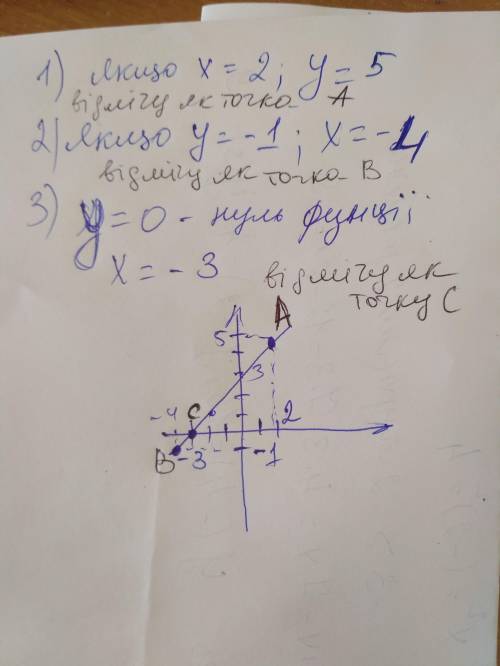 1) Якщо x = 2; y = 5
відмічу як точка A
2) Якщо y = -1; x = -4
відмічу як точка B
3) y = 0 - нуль фунції
x = -3
відмічу як
точку C
A
5
3
-4 C 2
B -3 -1